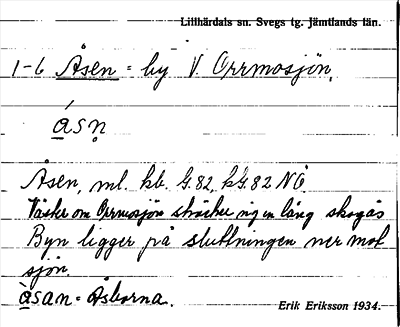 Lillhärdals sn. Svegs tg. Jämtlands län.
1-6 Åsen = by V. Orrmosjön.
ásn̥
Åsen, ml. kb. G.82, kG.82 NO
Väster om Orrmosjön sträcker sig en lång skogås
Byn ligger på sluttningen ner mot
sjön.
àsan = Åsborna.
Erik Eriksson 1934.